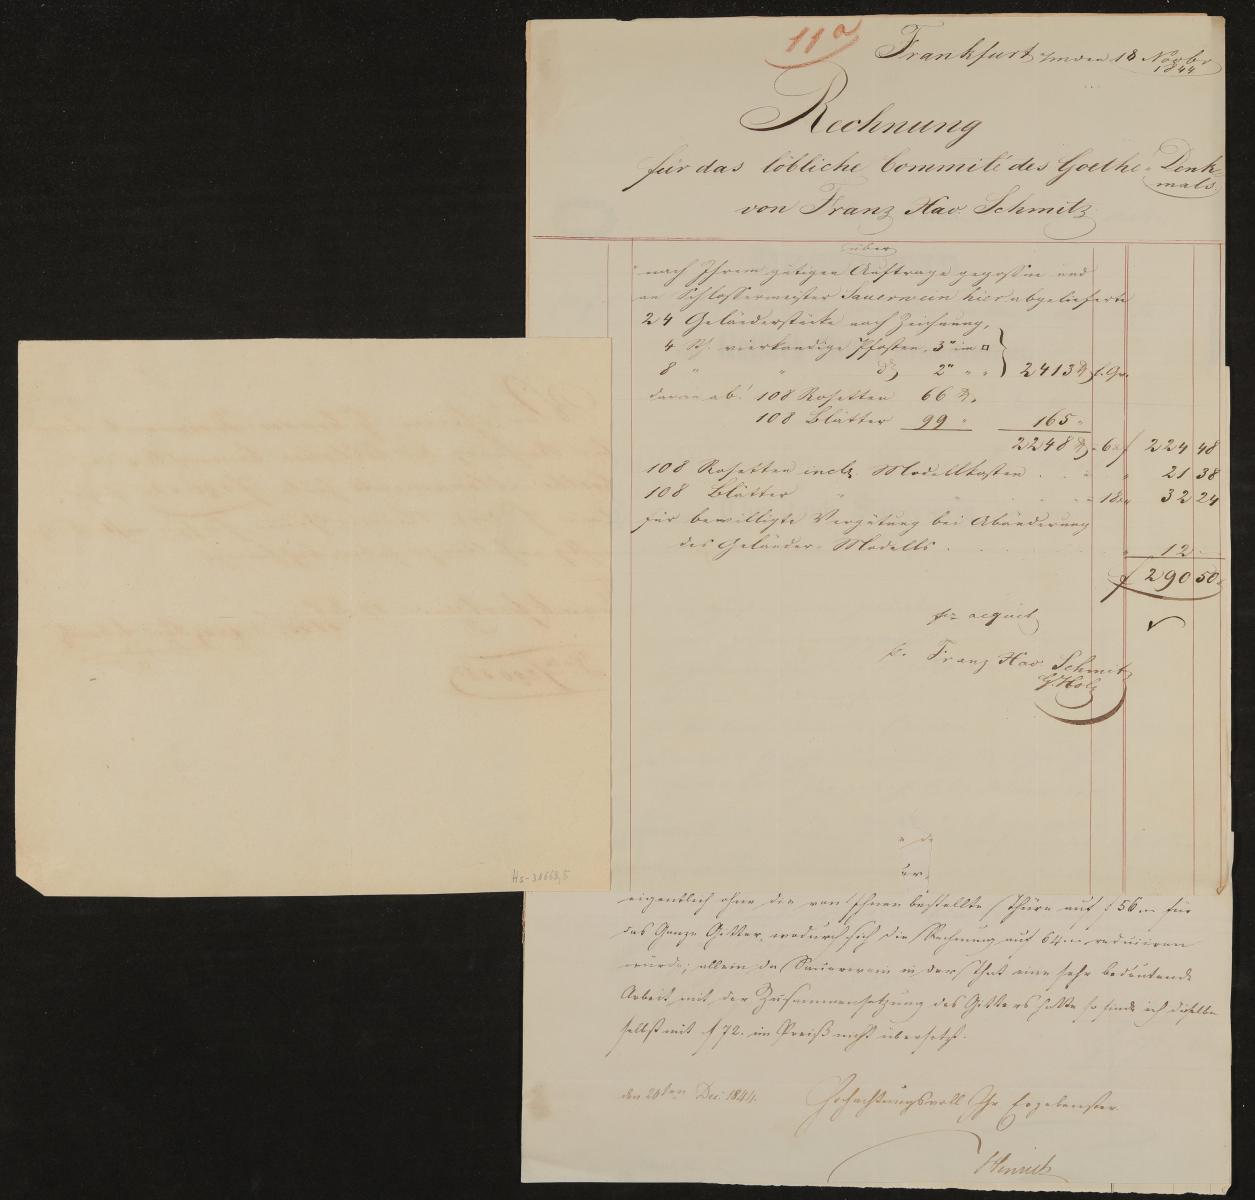 11a
Frankfurt a/m den 18 Novbr
1844
Rechnung
für das löbliche Commité des Goethe-Denk-
mals
von Franz Xav. Schmitz
über
nach Ihrem gütigen Auftrage gegossene und
an Schlossermeister Sauerwein hier abgelieferte
24 Geländerstücke nach Zeichnung,
4 St. vierkandige Pfosten, 3" im □
8 " " do 2" " " 2413 ℔ f. Gr.
davon ab: 108 Rosetten 66 ℔.
108 Blätter 99 " 165 "
2248 ℔ 6 f 224 48
108 Rosetten incl. Modellkosten . . " 21 38
108 Blätter " " 18 " 32 24
für bewilligte Vergütung bei Abänderung
des Geländer-Modells . . . " 12
f 290 50
pr acquit
p. Franz Xav. Schmitz
G. Holz
Hs-31663,5
eigentlich ohne die von Ihnen bestellte Thüre auf f 56 für
das Ganze Gitter, wodurch sich die Rechnung auf 64 reduciren
würde; allein da Sauerwein in der That eine sehr bedeutende
Arbeit mit der Zusammensetzung des Gitters hatte so finde ich dieselbe
selbst mit f 72. im Preiß nicht übersetzt.
den 20ten Dec. 1844. Hochachtungsvoll Ihr Ergebenster